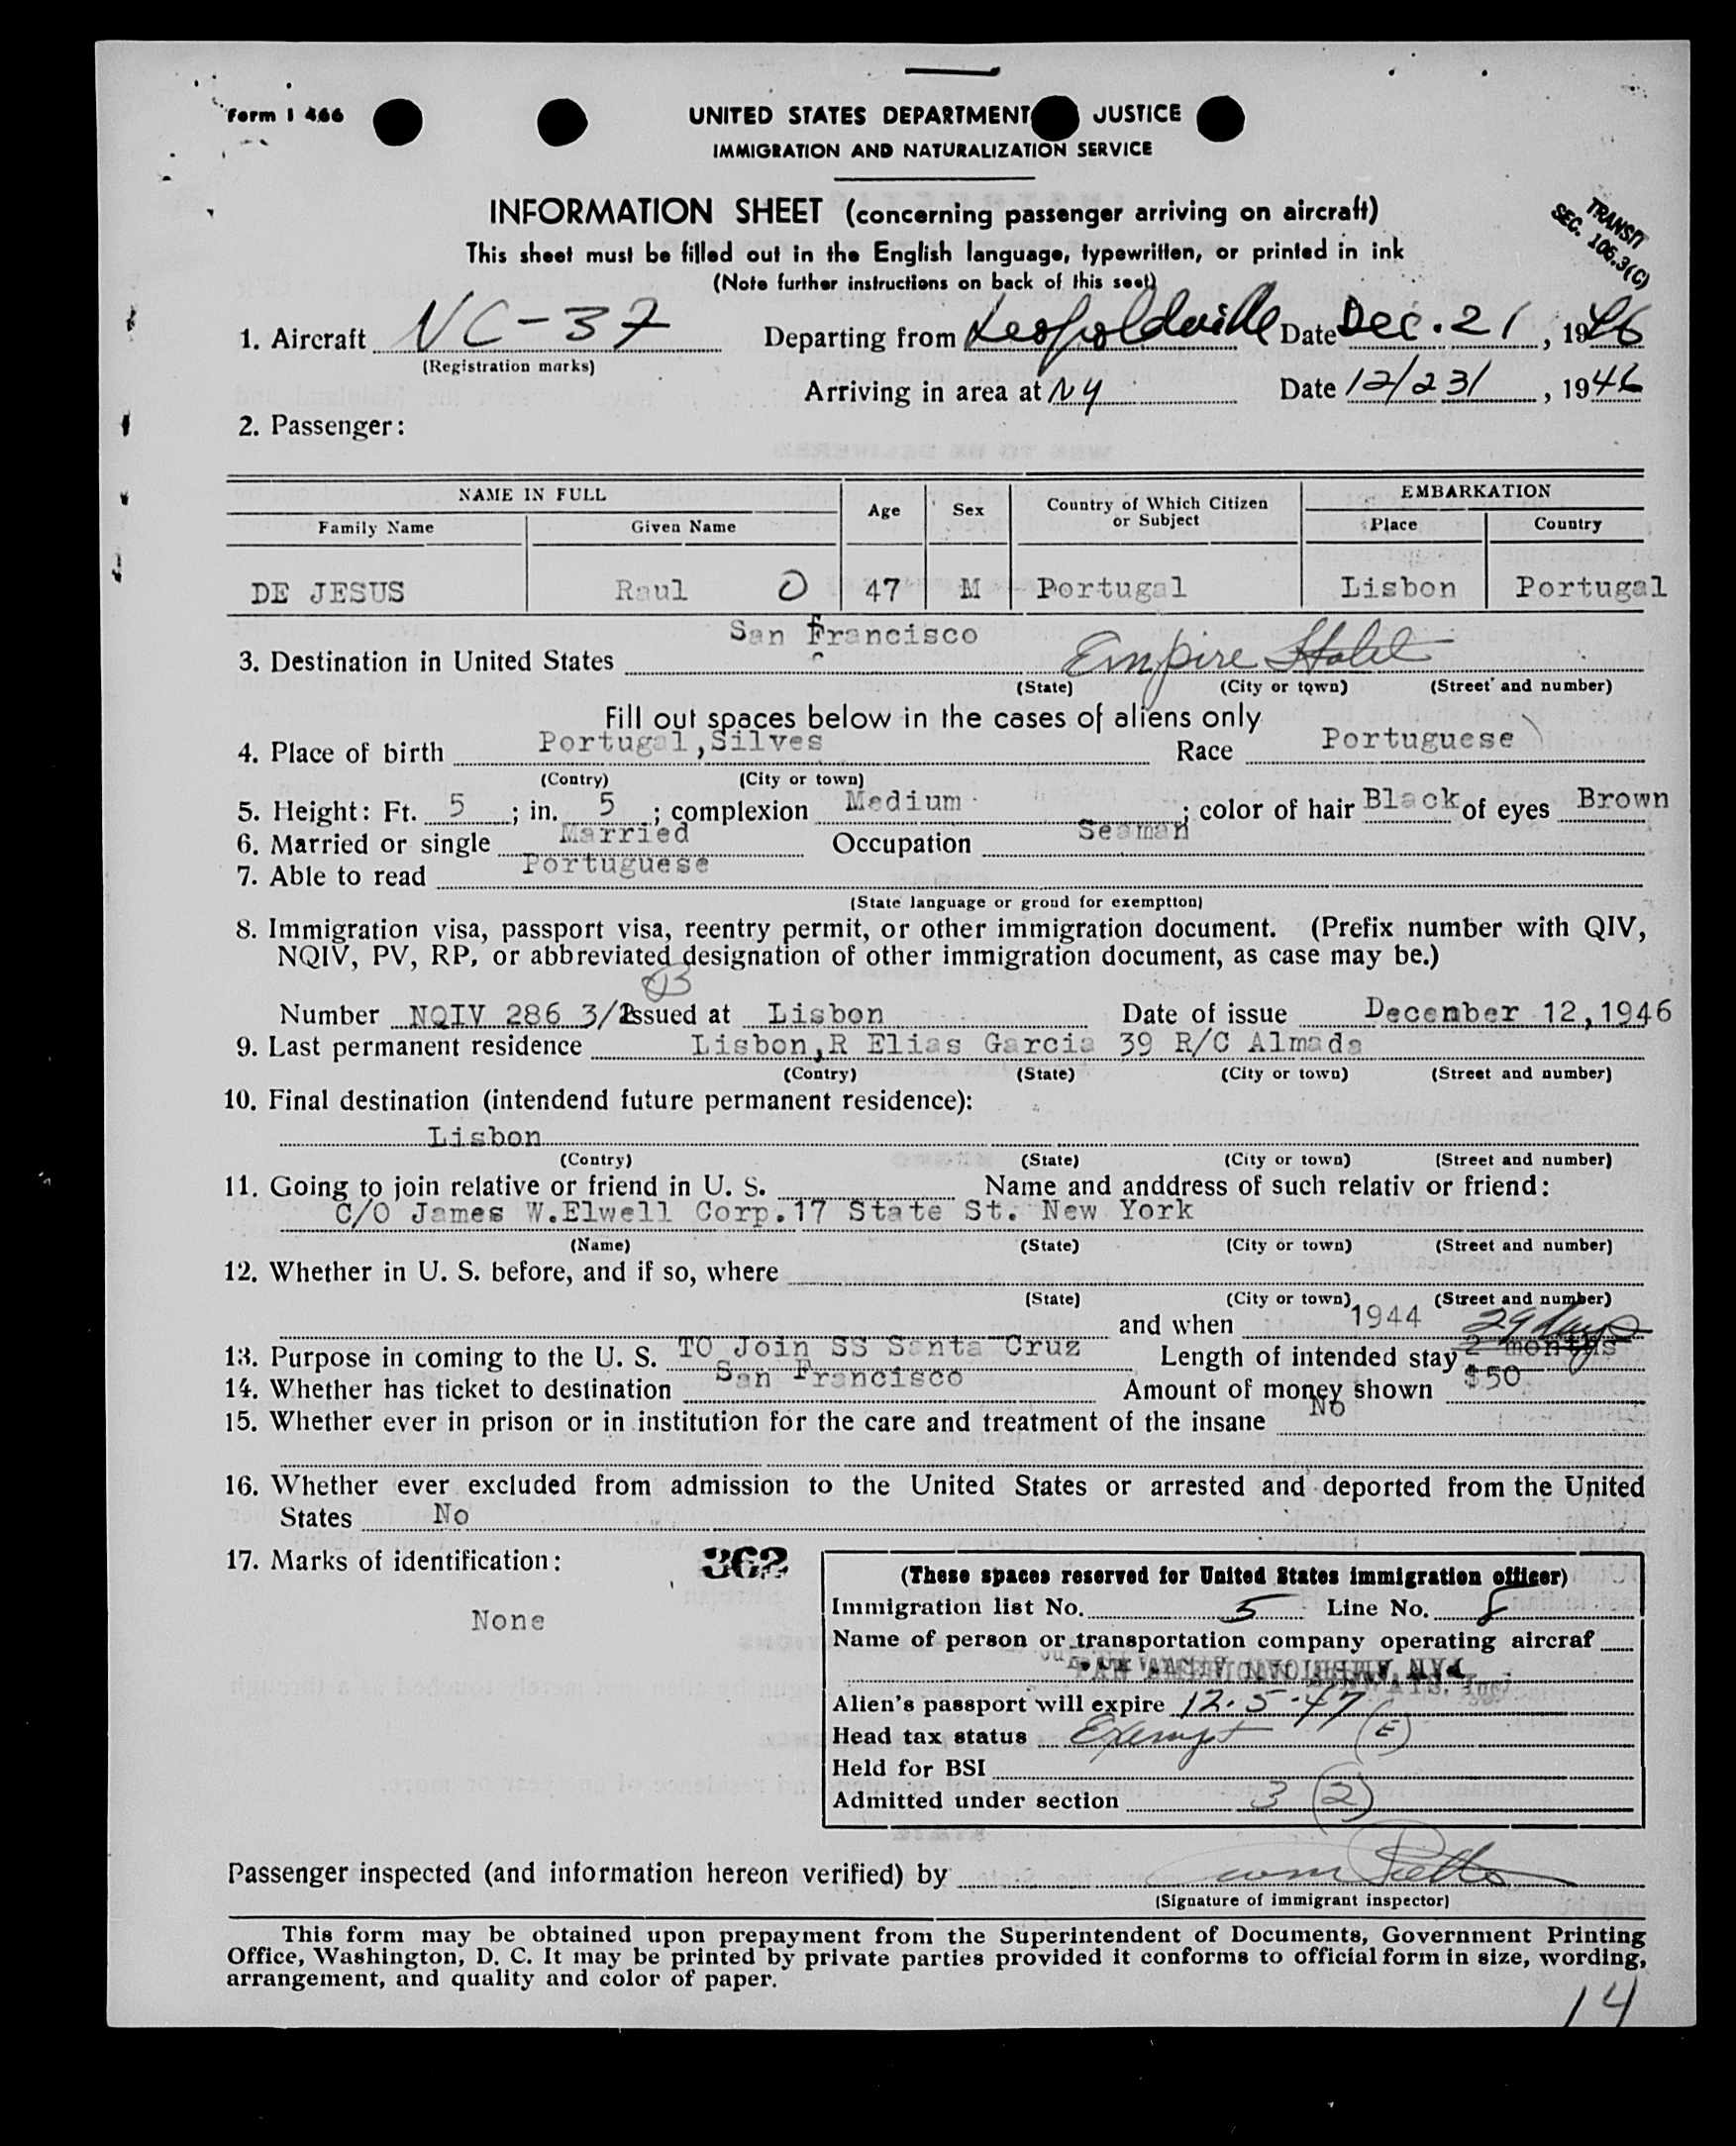 Form I 466
UNITED STATES DEPARTMENT JUSTICE
IMMIGRATION AND NATURALIZATION SERVICE
INFORMATION SHEET (concerning passenger arriving on aircraft)
TRANSIT
SEC. 106.3(C)
This sheet must be filled out in the English language, typewritten, or printed in ink
(Note further instructions on back of this seet)
1. Aircraft NC-37 Departing from Leopoldville Date Dec. 21, 1946
(Registration marks)
Arriving in area at NY Date 12/23/, 1946
2. Passenger:
NAME IN FULL Age Sex Country of Which Citizen or Subject EMBARKATION
Family Name Given Name Place Country
DE JESUS Raul O 47 M Portugal Lisbon Portugal
San Francisco
3. Destination in United States Empire Hotel
(State) (City or town) (Street and number)
Fill out spaces below in the cases of aliens only
4. Place of birth Portugal,Silves Race Portuguese
(Contry) (City or town)
5. Height: Ft. 5; in. 5; complexion Medium; color of hair Black of eyes Brown
6. Married or single Married Occupation Seaman
7. Able to read Portuguese
(State language or groud for exemptton)
8. Immigration visa, passport visa, reentry permit, or other immigration document. (Prefix number with QIV,
NQIV, PV, RP, or abbreviated designation of other immigration document, as case may be.)
Number NQIV 286 3/2 Issued at Lisbon Date of issue December 12,1946
9. Last permanent residence Lisbon,R Elias Garcia 39 R/C Almada
(Contry) (State) (City or town) (Street and number)
10. Final destination (intendend future permanent residence):
Lisbon
(Contry) (State) (City or town) (Street and number)
11. Going to join relative or friend in U. S. Name and anddress of such relativ or friend:
C/O James W.Elwell Corp.17 State St. New York
(Name) (State) (City or town) (Street and number)
12. Whether in U. S. before, and if so, where
(State) (City or town) (Street and number)
and when 1944
13. Purpose in coming to the U. S. TO Join SS Santa Cruz Length of intended stay 2 months 29 days
14. Whether has ticket to destination San Francisco Amount of money shown $50
15. Whether ever in prison or in institution for the care and treatment of the insane No
16. Whether ever excluded from admission to the United States or arrested and deported from the United
States No
17. Marks of identification: 362
None
(These spaces reserved for United States immigration officer)
Immigration list No. 5 Line No. 8
Name of person or transportation company operating aircraf
Alien's passport will expire 12-5-47
Head tax status Exempt (E)
Held for BSI
Admitted under section 3 (2)
Passenger inspected (and information hereon verified) by
(Signature of immigrant inspector)
This form may be obtained upon prepayment from the Superintendent of Documents, Government Printing
Office, Washington, D. C. It may be printed by private parties provided it conforms to official form in size, wording,
arrangement, and quality and color of paper.
14